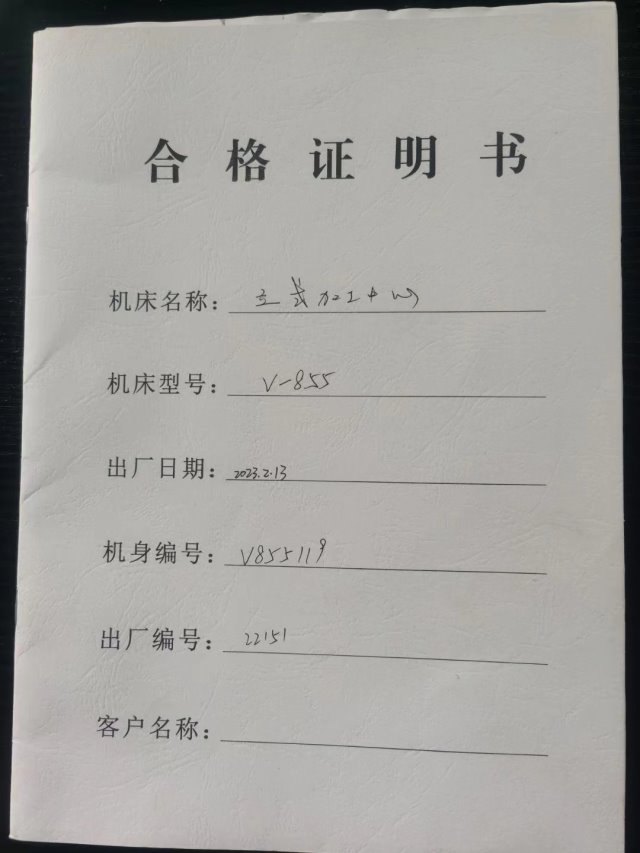 合格证明书
机床名称：立式加工中心
机床型号：V-855
出厂日期：2023.2.13
机身编号：V855119
出厂编号：22151
客户名称：